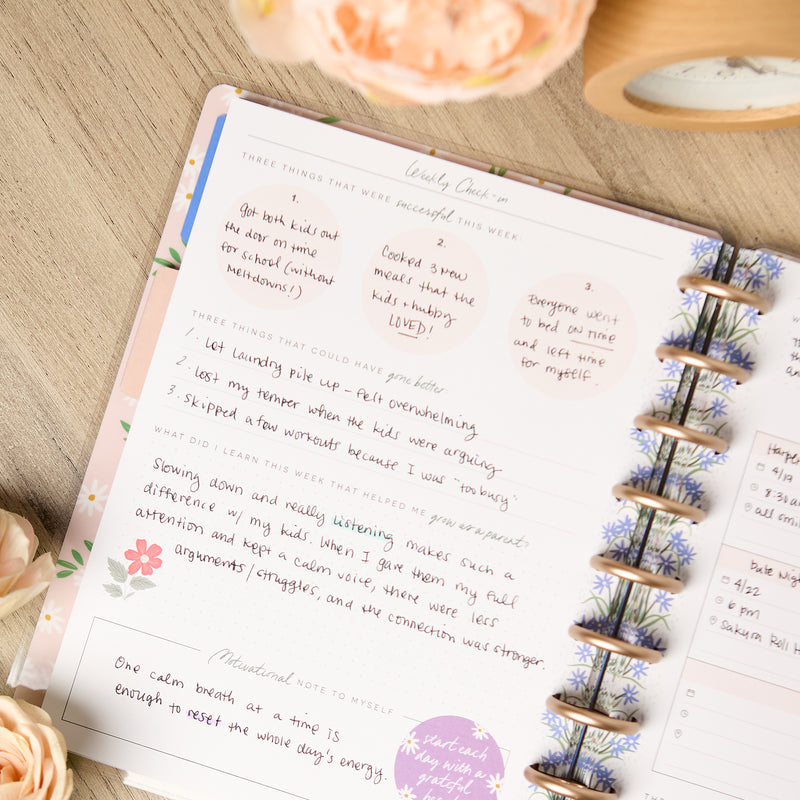 Weekly Check-in
THREE THINGS THAT WERE successful THIS WEEK:
1.
Got both kids out
the door on time
for school (without
meltdowns!)
2.
Cooked 3 new
meals that the
kids + hubby
LOVED!
3.
Everyone went
to bed on time
and left time
for myself.
THREE THINGS THAT COULD HAVE gone better:
1. Let laundry pile up - felt overwhelming
2. Lost my temper when the kids were arguing
3. Skipped a few workouts because I was "too busy"
WHAT DID I LEARN THIS WEEK THAT HELPED ME grow as a parent?
Slowing down and really listening makes such a
difference w/ my kids. When I gave them my full
attention and kept a calm voice, there were less
arguments/struggles, and the connection was stronger.
Motivational NOTE TO MYSELF
One calm breath at a time is
enough to reset the whole day's energy.
start each
day with a
grateful
Harper
4/17
8:30 a
all smil
Date Nigh
4/22
6 pm
Sakura Roll H
THR